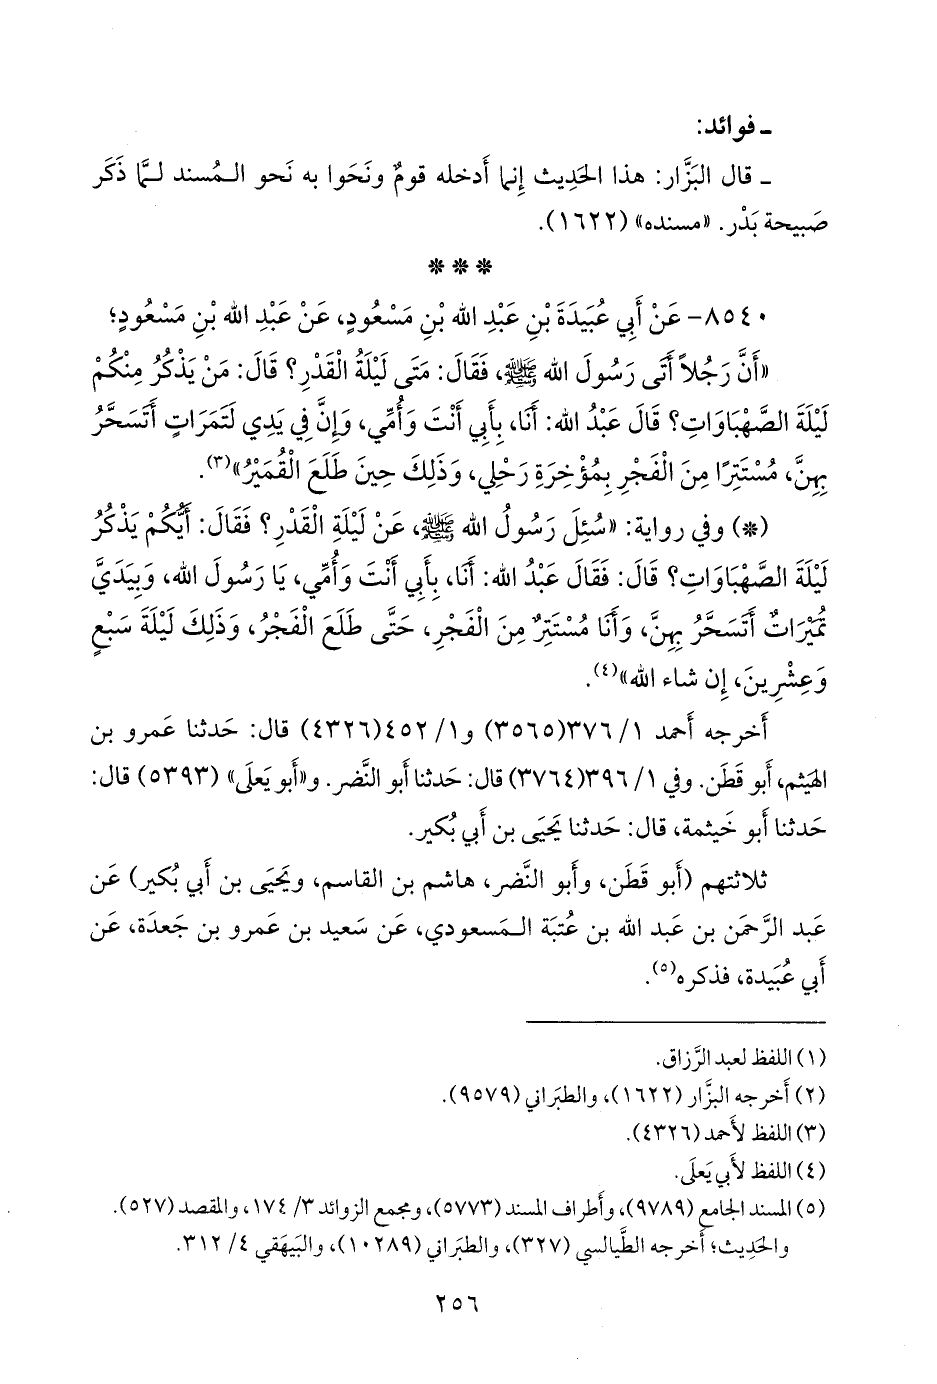 ـ فوائد:
ـ قال البَزَّار: هذا الحَدِيث إِنما أَدخله قومٌ ونَحَوا به نَحو الـمُسند لـمَّا ذَكَر
صَبيحة بَدْر. «مسنده» (١٦٢٢).
***
٨٥٤٠- عَنْ أَبِي عُبَيدَةَ بْنِ عَبْدِ الله بْنِ مَسْعُودٍ، عَنْ عَبْدِ الله بْنِ مَسْعُودٍ؛
«أَنَّ رَجُلاً أَتَى رَسُولَ الله ﷺ، فَقَالَ: مَتَى لَيْلَةُ الْقَدْرِ؟ قَالَ: مَنْ يَذْكُرُ مِنْكُمْ
لَيْلَةَ الصَّهْبَاوَاتِ؟ قَالَ عَبْدُ الله: أَنَا، بِأَبِي أَنْتَ وَأُمِّي، وَإِنَّ فِي يَدِي لَتَمَرَاتٍ أَتَسَحَّرُ
بِهِنَّ، مُسْتَتِرًا مِنَ الْفَجْرِ بِمُؤْخِرَةِ رَحْلِي، وَذَلِكَ حِينَ طَلَعَ الْقُمَيْرُ»(٣).
(*) وفي رواية: «سُئِلَ رَسُولُ الله ﷺ، عَنْ لَيْلَةِ الْقَدْرِ؟ فَقَالَ: أَيُّكُمْ يَذْكُرُ
لَيْلَةَ الصَّهْبَاوَاتِ؟ قَالَ: فَقَالَ عَبْدُ الله: أَنَا، بِأَبِي أَنْتَ وَأُمِّي، يَا رَسُولَ الله، وَبِيَدَيَّ
تُمَيْرَاتٌ أَتَسَحَّرُ بِهِنَّ، وَأَنَا مُسْتَتِرٌ مِنَ الْفَجْرِ، حَتَّى طَلَعَ الْفَجْرُ، وَذَلِكَ لَيْلَةَ سَبْعٍ
وَعِشْرِينَ، إِن شاء الله»(٤).
أَخرجه أَحمد ١/ ٣٧٦(٣٥٦٥) و١/ ٤٥٢(٤٣٢٦) قال: حَدثنا عَمرو بن
الهَيثم، أَبو قَطَن. وفي ١/ ٣٩٦(٣٧٦٤) قال: حَدثنا أَبو النَّضر. و«أَبو يَعلَى» (٥٣٩٣) قال:
حَدثنا أَبو خَيثمة، قال: حَدثنا يَحيَى بن أَبي بُكير.
ثلاثتهم (أَبو قَطَن، وأَبو النَّضر، هاشم بن القاسم، ويَحيَى بن أَبي بُكير) عَن
عَبد الرَّحمَن بن عَبد الله بن عُتبَة الـمَسعودي، عَن سَعيد بن عَمرو بن جَعدَة، عَن
أَبي عُبَيدة، فذكره(٥).
(١) اللفظ لعبد الرَّزاق.
(٢) أَخرجه البزَّار (١٦٢٢)، والطبَراني (٩٥٧٩).
(٣) اللفظ لأَحمد (٤٣٢٦).
(٤) اللفظ لأَبي يَعلَى.
(٥) المسند الجامع (٩٧٨٩)، وأَطراف المسند (٥٧٧٣)، ومجمع الزوائد ٣/ ١٧٤، والمقصد (٥٢٧).
والحَدِيث؛ أَخرجه الطَّيالسي (٣٢٧)، والطبَراني (١٠٢٨٩)، والبَيهَقي ٤/ ٣١٢.
٢٥٦